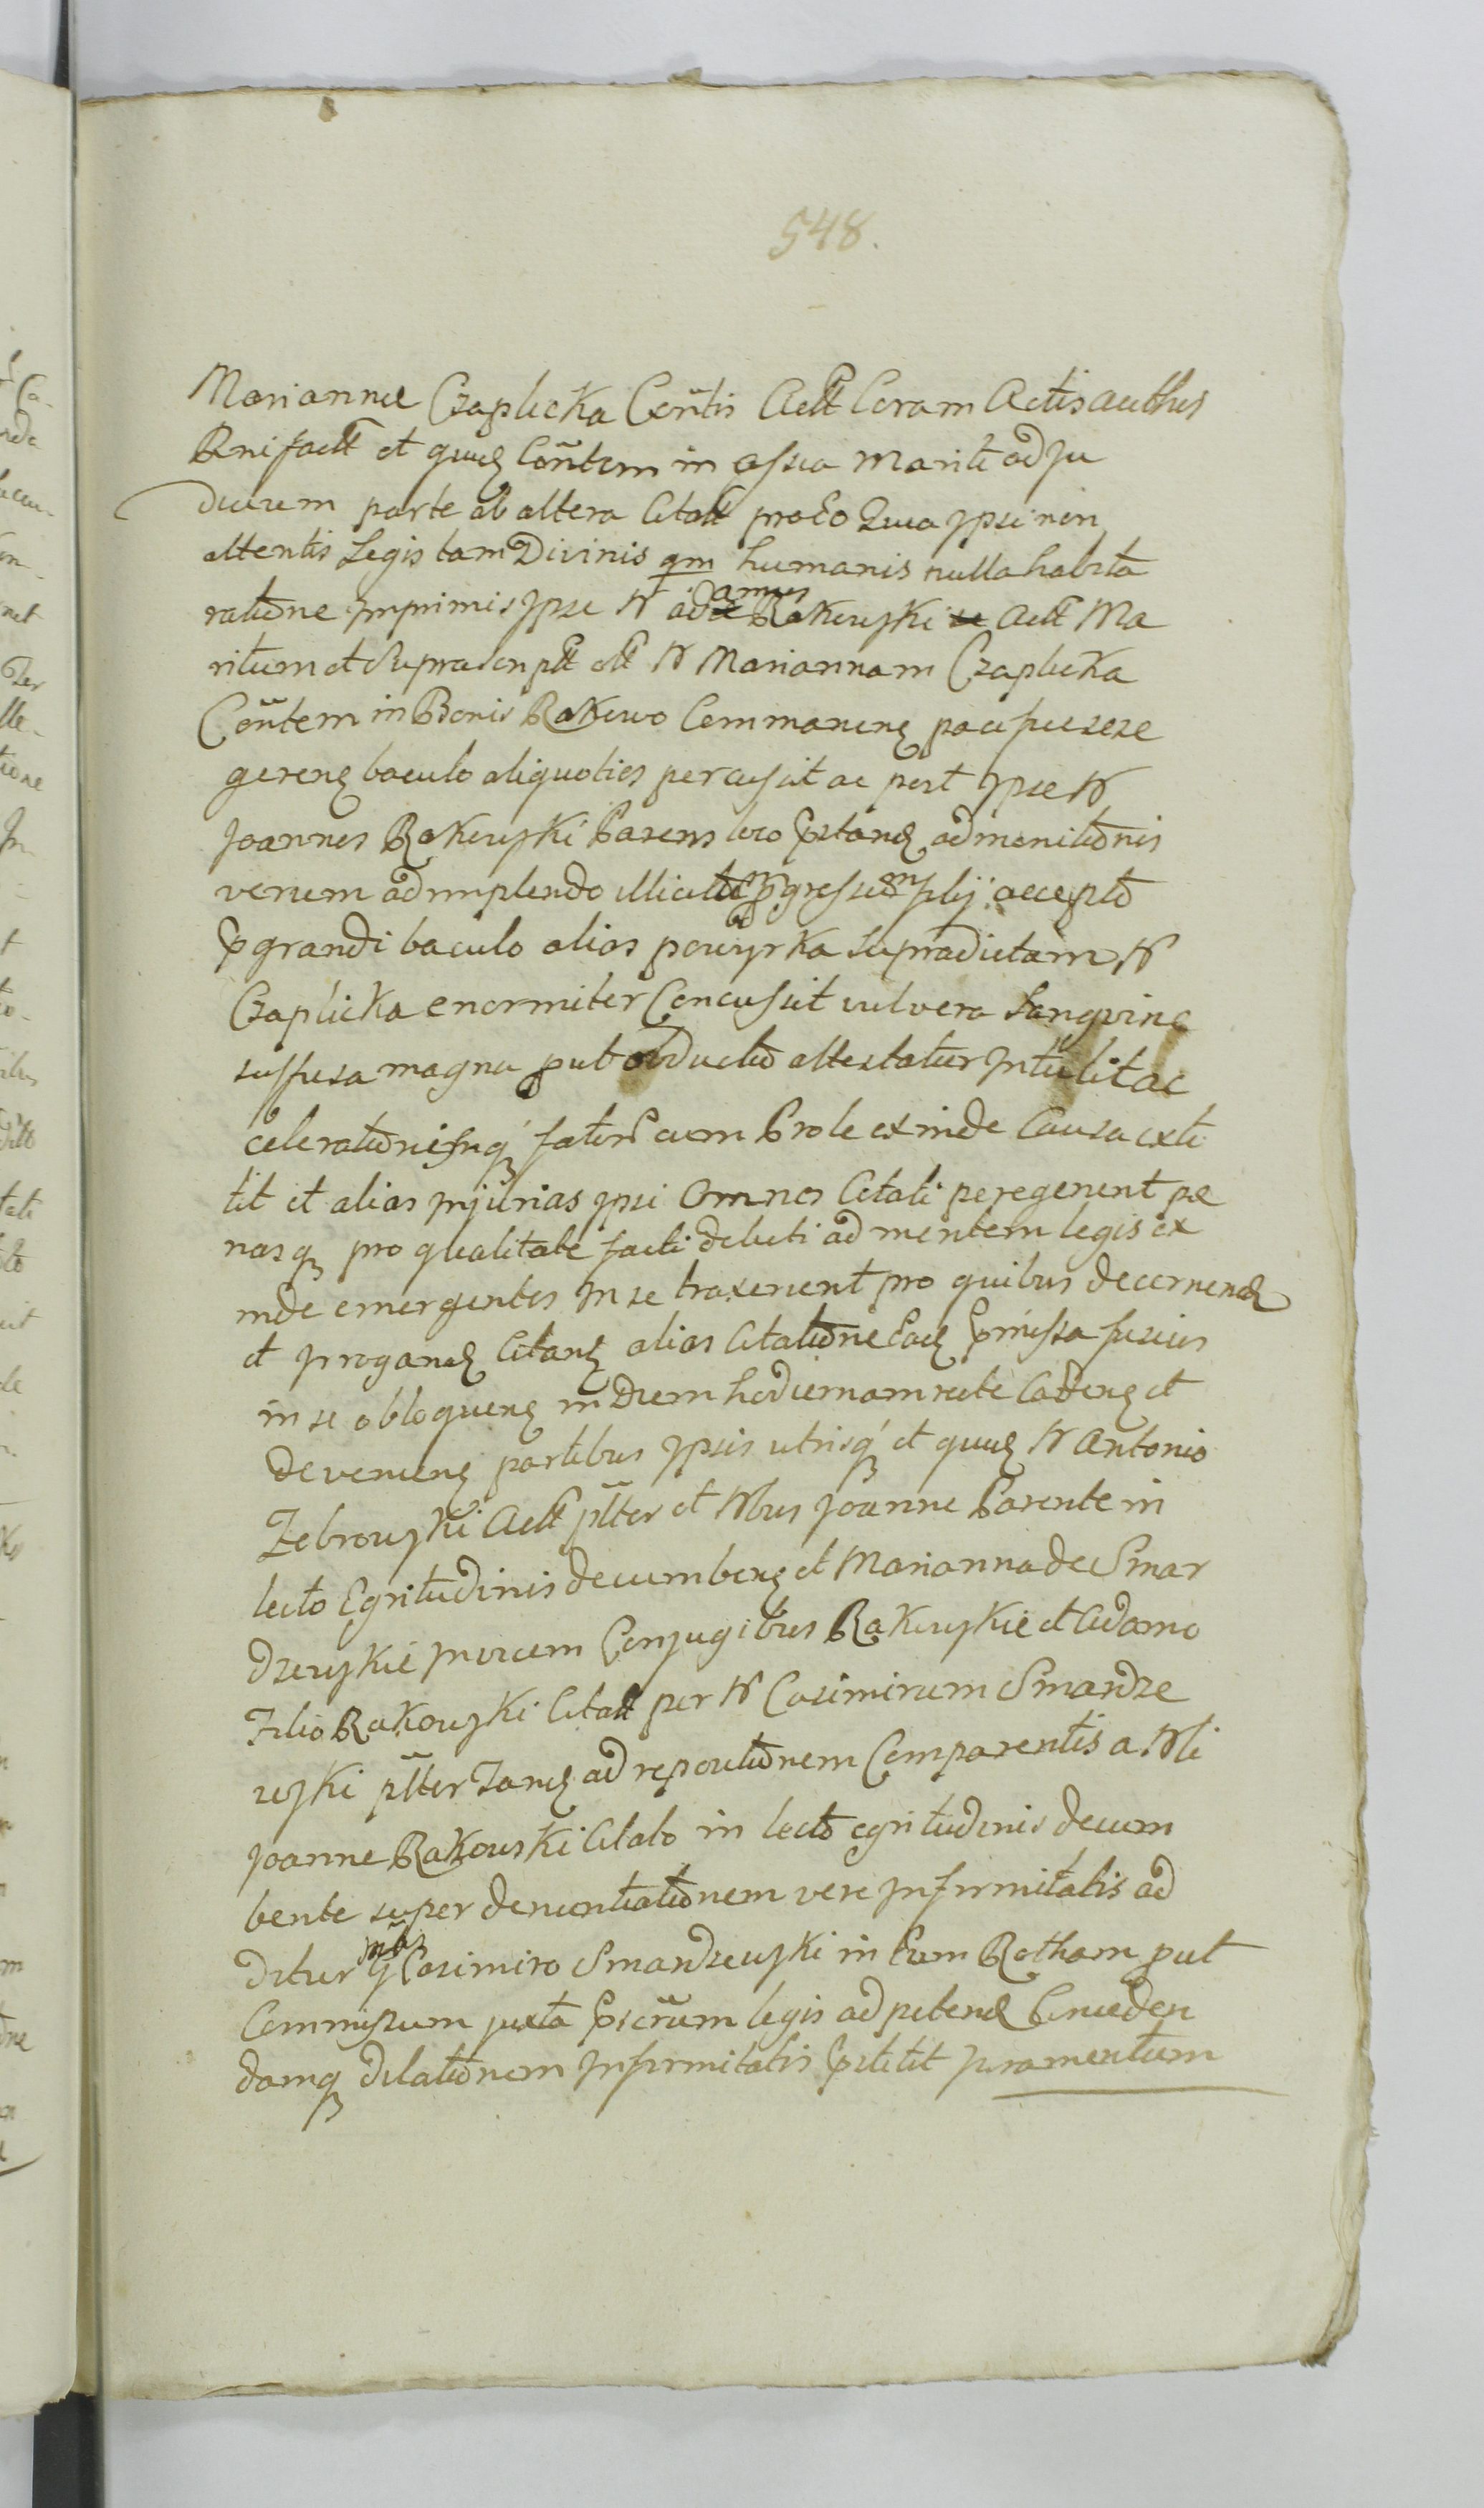 548.
Mariannæ Czaplicka Cõntis Actt Coram Actis authūs
et quuq Cõntem in assia Mariti ad Ju
dicium parte ab altera Citatt pro Eo Quia ipsi non
attentis Legis tam Divinis qm humanis nulla habita
ratione inprimis ipse N adamus Rakowski Actt Ma
ritum et Suprascriptt N Mariannam Czaplicka
Cõntem in Bonis Rakowo Commanenq pacifice sese
gerenq baculo aliquoties percusit ac post ipse N
Joannes Rakowski Parens loco admonitionis
verum adimplendo illicitũ filij accepto
grandi baculo alias powyrka supradictam N
Czaplicka enormiter Concussit vulnera Sangvine
suffusa magna put obductio attestatur intulit ac
celerationisnq fatori cum Prole exinde Causa exti
tit et alias injurias ipsi Omnes Citati peregerunt pæ
nasq pro qualitate facti debiti ad mentem legis ex
inde emergentes in se traxerunt pro quibus decernend
et irrogand Citanq alias Citatione Eadq Emissa fusius
in se obloquenq in Diem hodiernam recte Cadenq et
devenienq partibus ipsis utrisq et quuq N Antonio
Zebrowski Actt pltter et Nbus Joanne Parente in
lecto Egritudinis decumbenq et Marianna de Smar
dzewskie invicem Conjugibus Rakowskie et Adamo
Filio Rakowski Citatt per N Casimirum Smardze
wski pltter Tanq ad repositionem Comparentis a Nli
Joanne Rakowski Citato in lecto egritudinis decum
bente super denuntiationem vere infirmitatis ad
ditur Casimiro Smardzewski in Eum Rotham put
Commissum juxta legis ad petend Conceden
damq dilationem infirmitatis juramentum